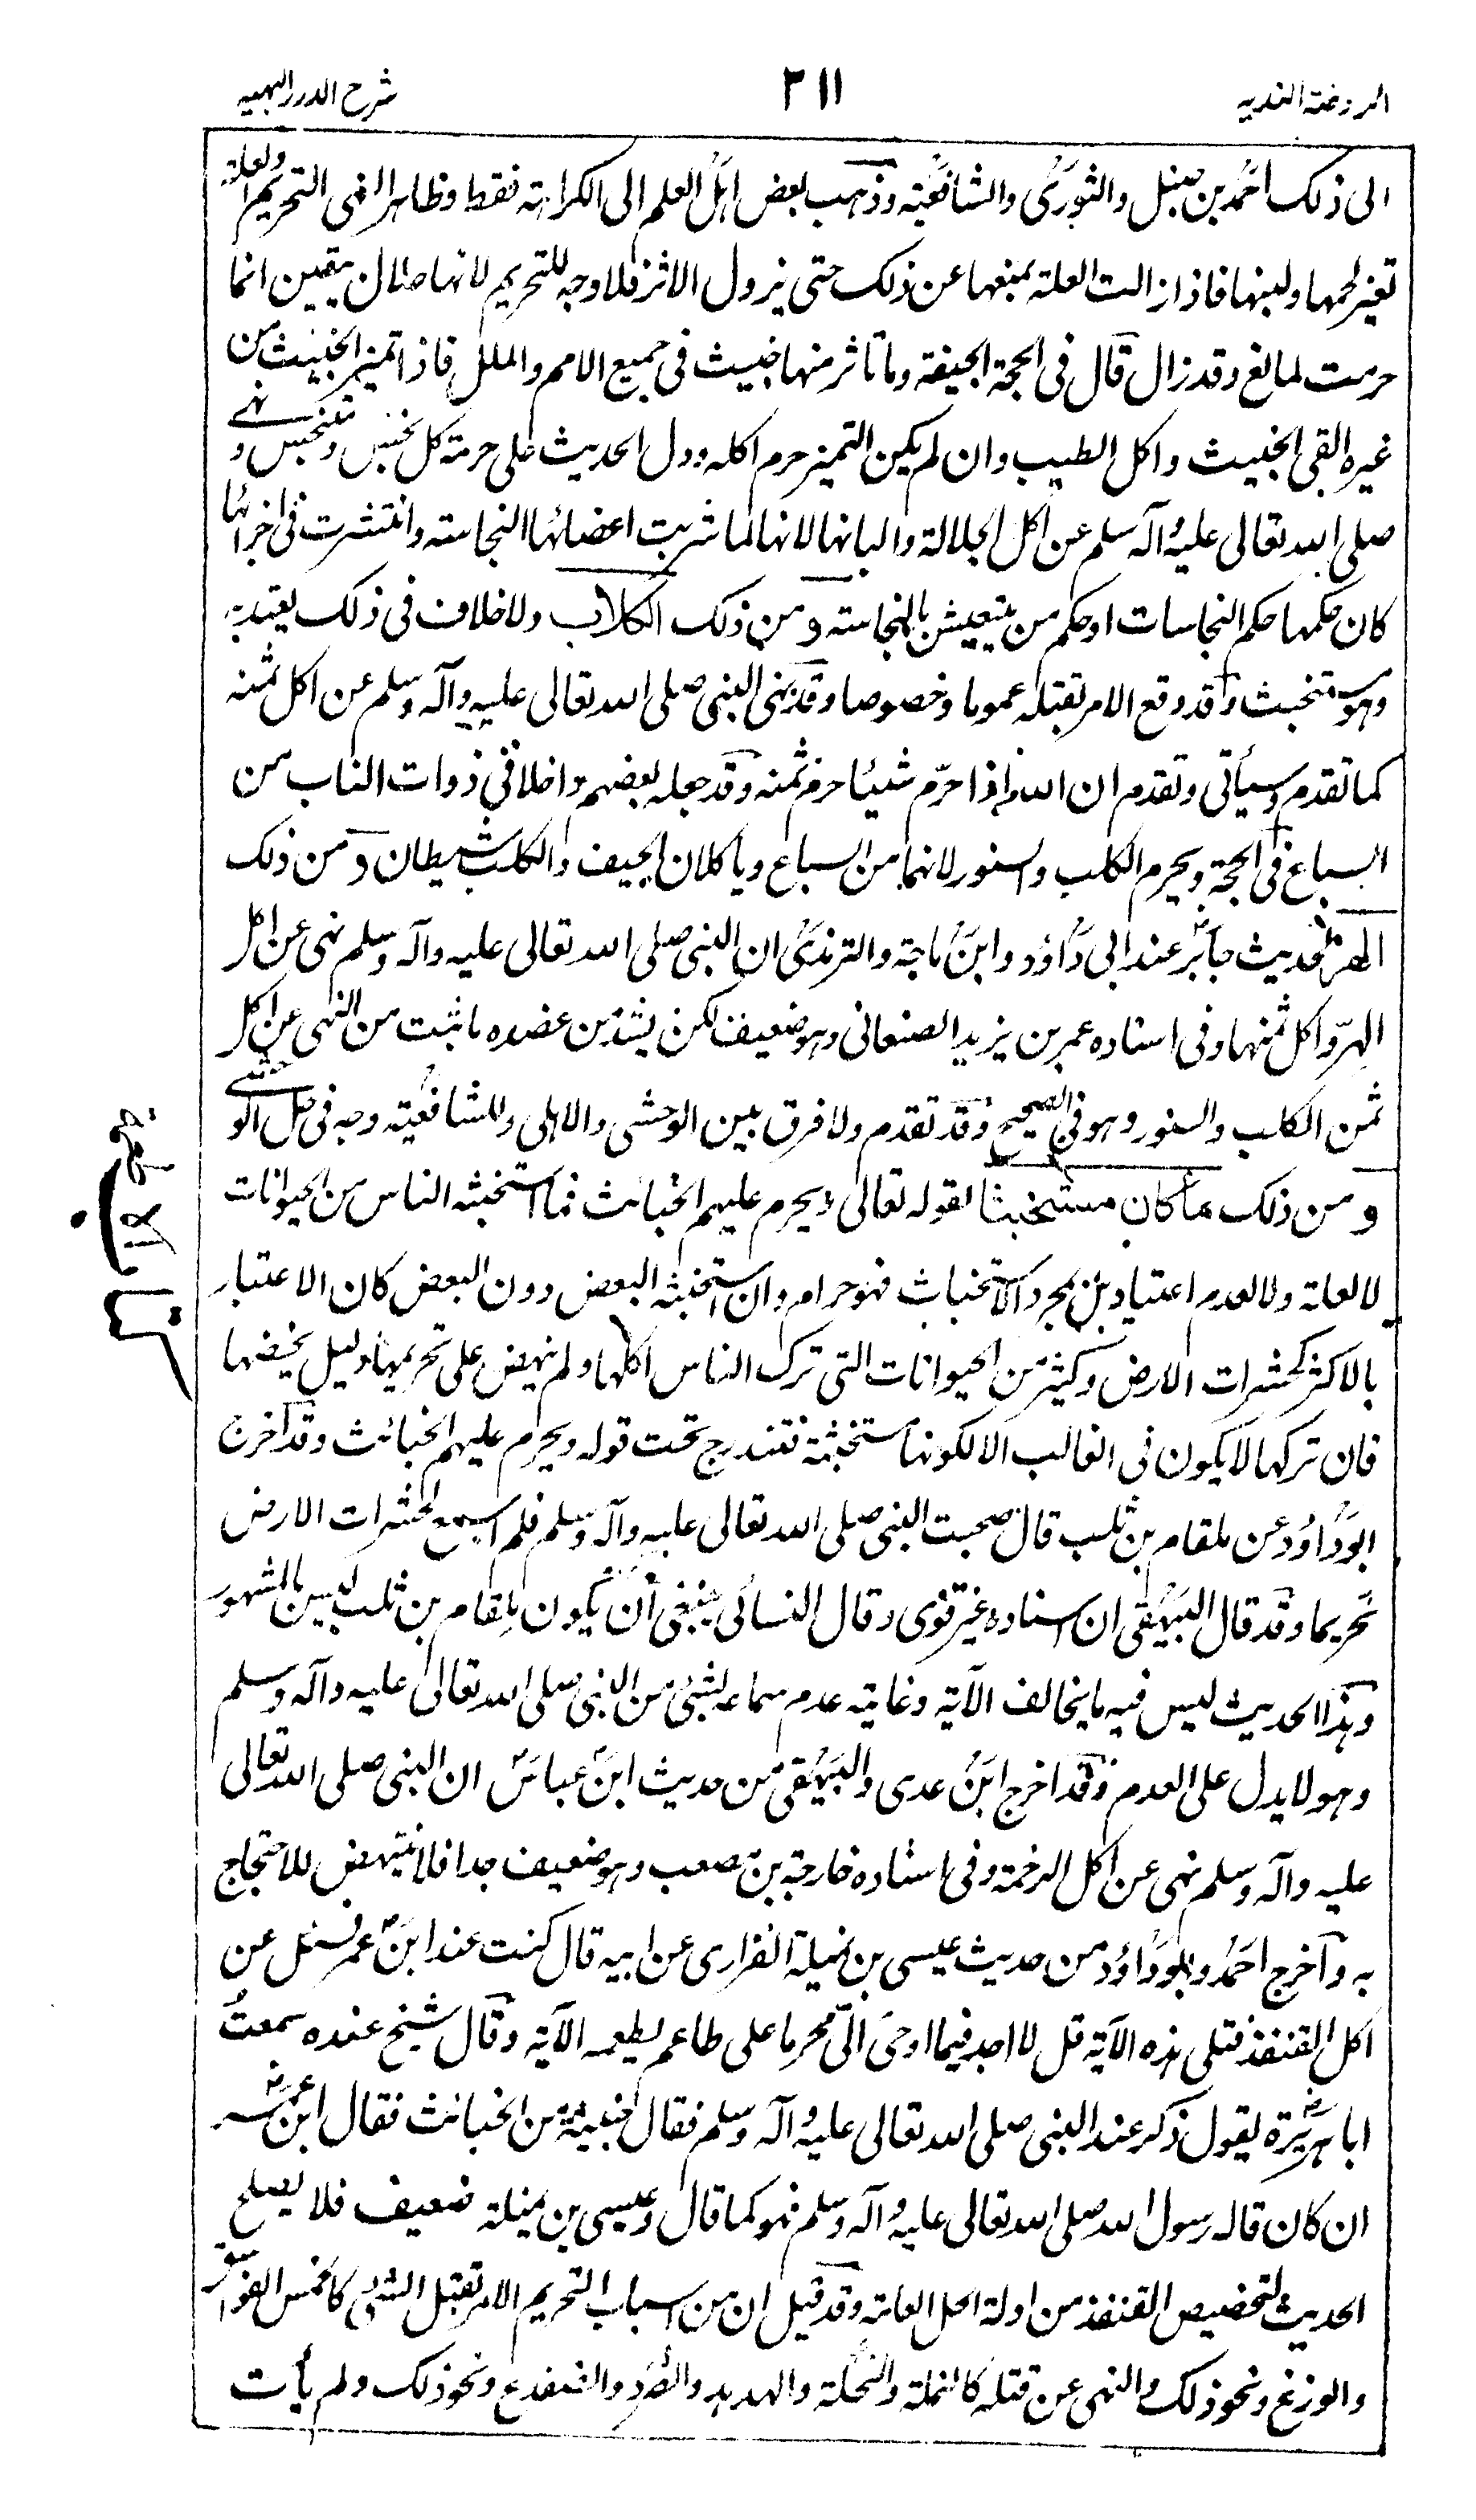 الروضة الندية
٣١١
شرح الدرر البهيه
الى ذلك احمد بن حنبل والثوري والشافعية وذهب بعض اهل العلم الى الكراهة فقط وظاهر النهي التحريم والعلة
تغير لحمها ولبنها فاذا زالت العلة بمنعها عن ذلك حتى يزول الاثر فلا وجه للتحريم لانها حلال بيقين انما
حرمت لمانع وقد زال قال في الحجة الجيفة وما تاثر منها خبيث في جميع الامم والملل فاذا تميز الخبيث من
غيره القي الخبيث واكل الطيب وان لم يكن التميز حرم اكله ودل الحديث على حرمة كل نجس ومتنجس ونهى
صلى الله تعالى عليه وآله سلم عن اكل الجلالة والبانها لانها لما شربت اعضائها النجاسة وانتشرت في اجزائها
كان حكمها حكم النجاسات او حكم من يتعيش بالنجاسة و من ذلك الكلاب ولا خلاف في ذلك يعتد به
وهو مستخبث وقد وقع الامر بقتله عموما وخصوصا وقد نهى النبي صلى الله تعالى عليه وآله وسلم عن اكل ثمنه
كما تقدم وسيأتي وتقدم ان الله اذا حرّم شيئا حرم ثمنه وقد جعله بعضهم داخلا في ذوات الناب من
السباع في الحجة ويحرم الكلب والسنور لانهما من السباع ويأكلان الجيف والكلب شيطان و من ذلك
الهر لحديث جابر عند ابي داؤد وابن ماجة والترمذي ان النبي صلى الله تعالى عليه وآله وسلم نهى عن اكل
الهرّ واكل ثمنها وفي اسناده عمر بن يزيد الصنعاني وهو ضعيف لكن يشد من عضده ما ثبت من النهي عن اكل
ثمن الكلب والسنور وهو في الصحيح وقد تقدم ولا فرق بين الوحشي والاهلي وللشافعية وجه في حل الوحشي
و من ذلك ما كان مستخبثا لقوله تعالى ويحرم عليهم الخبائث فما استخبثه الناس من الحيوانات
لا لعلة ولا لعدم اعتياد بل بمجرد الاستخباث فهو حرام وان استخبثه البعض دون البعض كان الاعتبار
بالاكثر كحشرات الارض وكثير من الحيوانات التي ترك الناس اكلها ولم ينهض على تحريمها دليل يخصها
فان تركها لا يكون في الغالب الا لكونها مستخبثة فتندرج تحت قوله ويحرم عليهم الخبائث وقد اخرج
ابو داؤد عن ملقام بن ثلب قال صحبت النبي صلى الله تعالى عليه وآله وسلم فلم اسمع لحشرات الارض
تحريما وقد قال البيهقي ان اسناده غير قوي وقال النسائي ينبغي ان يكون ملقام بن ثلب ليس بالمشهور
وهذا الحديث ليس فيه ما يخالف الآية وغايته عدم سماعه لشئ من النبي صلى الله تعالى عليه وآله وسلم
وهو لا يدل على العدم وقد اخرج ابن عدى والبيهقي من حديث ابن عباس ان النبي صلى الله تعالى
عليه وآله وسلم نهى عن اكل الرخمة وفي اسناده خارجة بن مصعب وهو ضعيف جدا فلا ينتهض للاحتجاج
به وآخرج احمد وابو داؤد من حديث عيسى بن نميلة الفزاري عن ابيه قال كنت عند ابن عمر فسئل عن
اكل القنفذ فتلى هذه الآية قل لا اجد فيما اوحى الىّ محرما على طاعم يطعمه الآية وقال شيخ عنده سمعت
ابا هريرة يقول ذكر عند النبي صلى الله تعالى عليه وآله وسلم فقال خبيثة من الخبائث فقال ابن عمر
ان كان قاله رسول الله صلى الله تعالى عليه وآله وسلم فهو كما قال وعيسى بن نميلة ضعيف فلا يصلح
الحديث لتخصيص القنفذ من ادلة الحل العامة وقد قيل ان من اسباب التحريم الامر بقتل الشئ كالخمس الفواسق
والوزغ ونحو ذلك والنهي عن قتله كالنملة والنحلة والهدهد والصُرَد والضفدع ونحو ذلك ولم يأت
كتاب الاطعمة